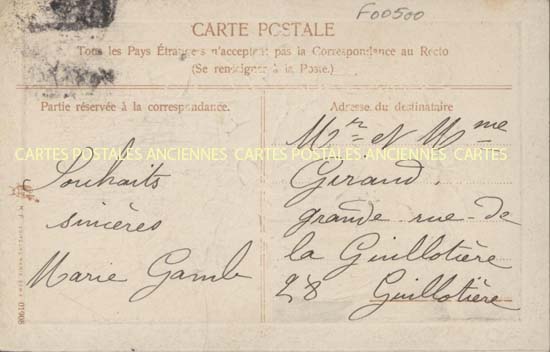 F00500
CARTE POSTALE
Tous les Pays Étrangers n'acceptent pas la Correspondance au Recto
(Se renseigner à la Poste.)
Partie réservée à la correspondance.
Adresse du destinataire
CARTES POSTALES ANCIENNES CARTES POSTALES ANCIENNES CARTES
Souhaits
sincères
Marie Gamb
Mr et Mme
Giraud,
grande rue de
la Guillotière
28 Guillotière
01906